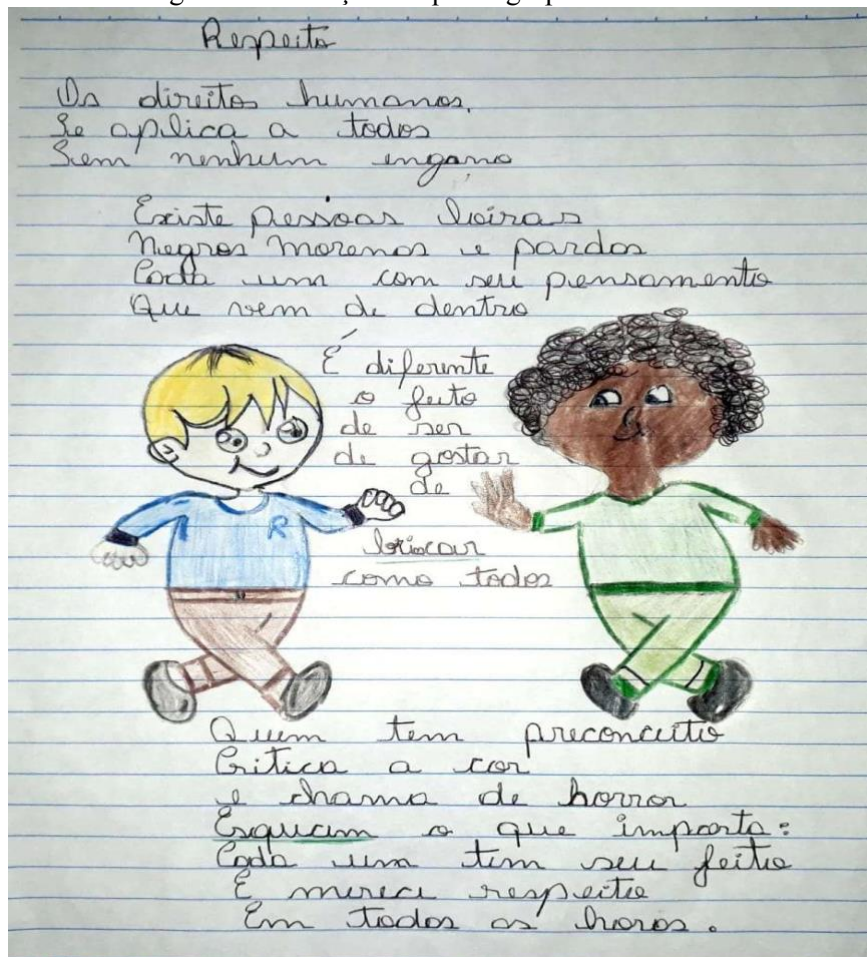 Respeito
Os direitos humanos.
Se aplica a todos
Sem nenhum engano
Existe pessoas loiras
Negros morenos e pardos
Cada um com seu pensamento
Que vem de dentro
É diferente
o feito
de ser
de gostar
de
brincar
como todos
R
Quem tem preconceito
Critica a cor
e chama de horror
Esqueçam o que importa:
Cada um tem seu feitio
E merece respeito
Em todos as horas.